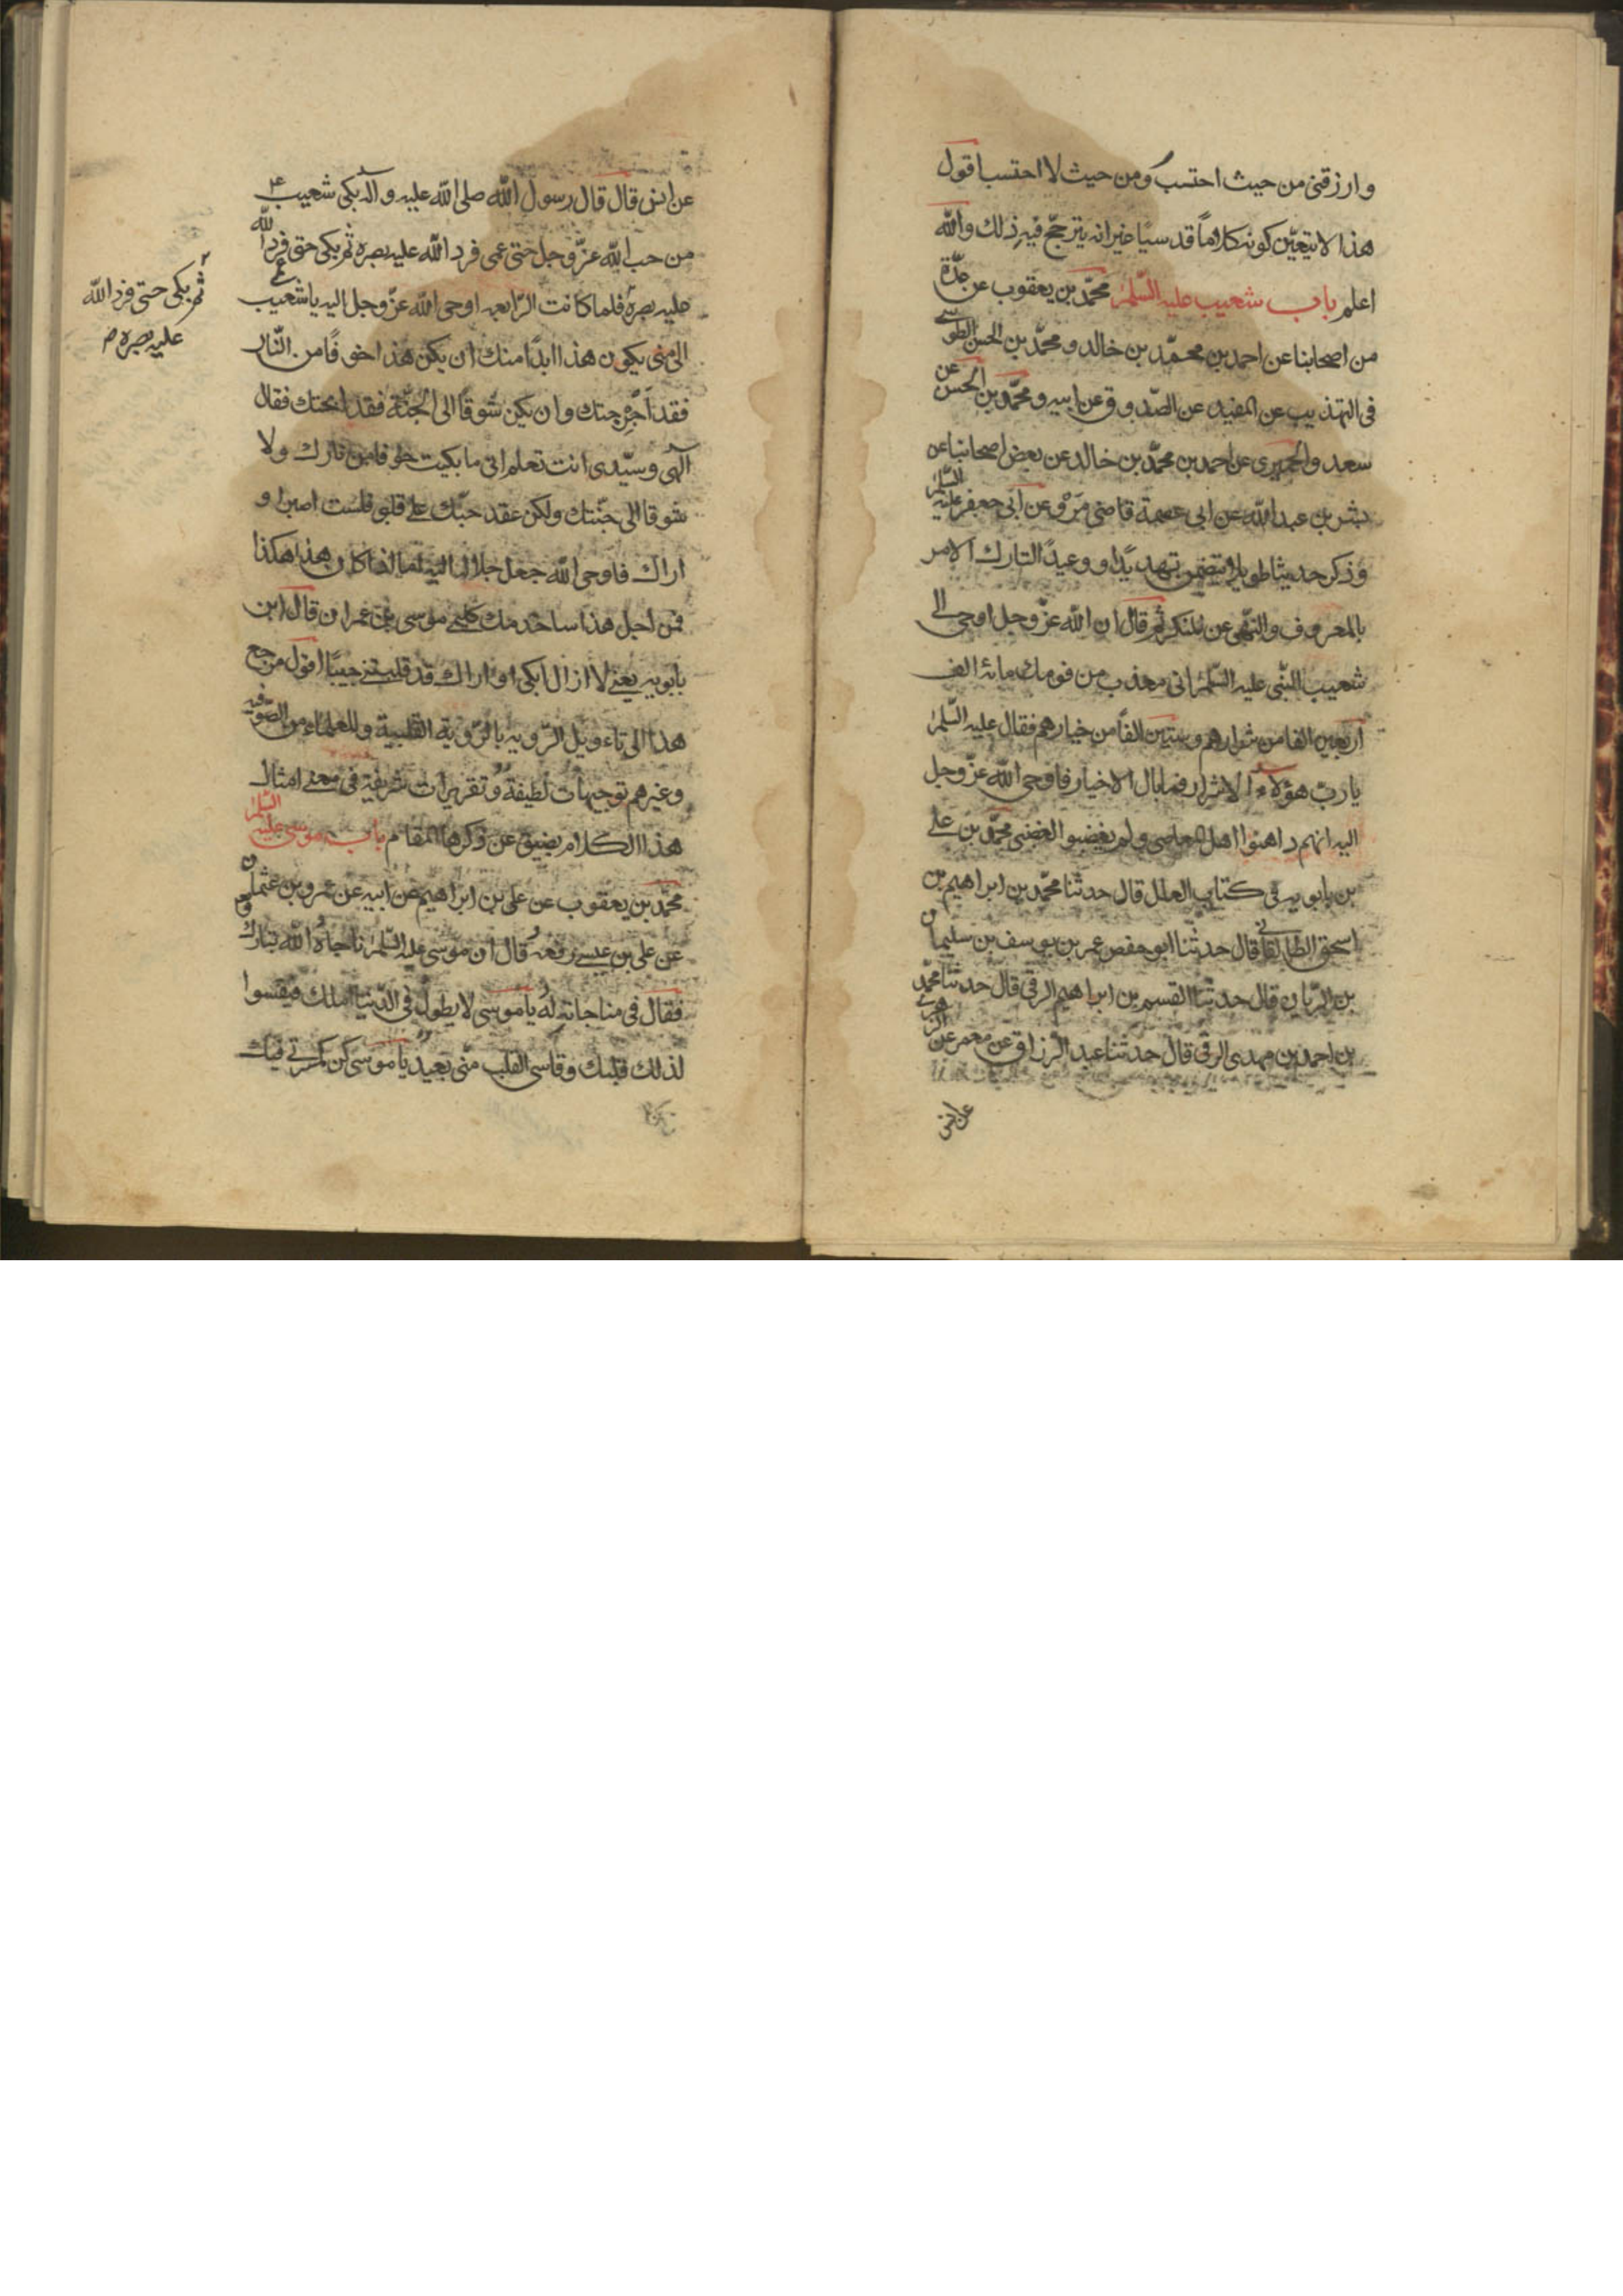 وارزقنی من حیث احتسب ومن حیث لا احتسب اقول
هذا لا یتعیّن کونه کلاماً قدسیّا غیر انه یترجّح فیه ذلك والله
اعلم باب شعیب علیه السّلم محمّد بن یعقوب عن عدّة
من اصحابنا عن احمد بن محمّد بن خالد ومحمّد بن الحسن الطوسی
فی التهذیب عن المفید عن الصّدوق عن ابیه ومحمّد بن الحسن عن
سعد والحمیری عن احمد بن محمّد بن خالد عن بعض اصحابنا عن
بشر بن عبدالله عن ابی عصمة قاضی مَرْو عن ابی جعفر علیه السّلم
وذکر حدیثا طویلا یتضمن تهدیدًا ووعیدًا لتارك الامر
بالمعروف والنّهی عن المنکر ثم قال ان الله عزّ وجل اوحی الی
شعیب النّبی علیه السّلم انی معذب من قومك مائة الف
اربعین الفا من شرارهم وستین الفاً من خیارهم فقال علیه السّلم
یا ربّ هؤلاء الاشرار فما بال الاخیار فاوحی الله عزّ وجل
الیه انهم داهنوا اهل المعاصی ولم یغضبوا لغضبی محمّد بن علی
بن بابویه فی کتاب العلل قال حدثنا محمّد بن ابراهیم بن
اسحق الطالقانی قال حدثنا ابو حفص عمر بن یوسف بن سلیمان
بن الریان قال حدثنا القسم بن ابراهیم الرقی قال حدثنا محمّد
بن احمد بن مهدی الرقی قال حدثنا عبد الرزاق عن معمر عن الزهری
عن انس
عن انس قال قال رسول الله صلی الله علیه وآله بکی شعیب ع
من حب الله عزّ وجل حتی عمی فرد الله علیه بصره ثم بکی حتی فرد الله
علیه بصره فلما کانت الرّابعه اوحی الله عزّ وجل الیه یا شعیب
الی متی یکون هذا ابدًا منك ان یکن هذا خوفًا من النّار
فقد اجرتك وان یکن شوقا الی الجنّة فقد ابحتك فقال
الهی وسیّدی انت تعلم انی ما بکیت خوفا من نارك ولا
شوقا الی جنّتك ولکن عقد حبّك علی قلبی فلست اصبر او
اراك فاوحی الله جل جلاله الیه اما اذا کان هذا هکذا
فمن اجل هذا ساخدمك کلیمی موسی بن عمران قال ابن
بابویه یعنی لا ازال ابکی او اراك قد قبلتنی حبیبًا اقول مرجع
هذا الی تاءویل الرّویه بالرّویة القلبیة وللعلماء من الصّوفیه
وغیرهم توجیهات لطیفة وتقریرات شریفة فی معنی امثال
هذا الکلام یضیق عن ذکرها المقام باب موسی علیه السّلم
محمّد بن یعقوب عن علی بن ابراهیم عن ابیه عن عمرو بن عثمان
عن علی بن عیسی رفعه قال ان موسی علیه السّلم ناجاه الله تبارك
فقال فی مناجاته له یا موسی لا یطول فی الدّنیا املك فیقسوا
لذلك قلبك وقاسی القلب منّی بعید یا موسی کن کمسرتی فیك
ثم بکی حتی فرد الله
علیه بصره